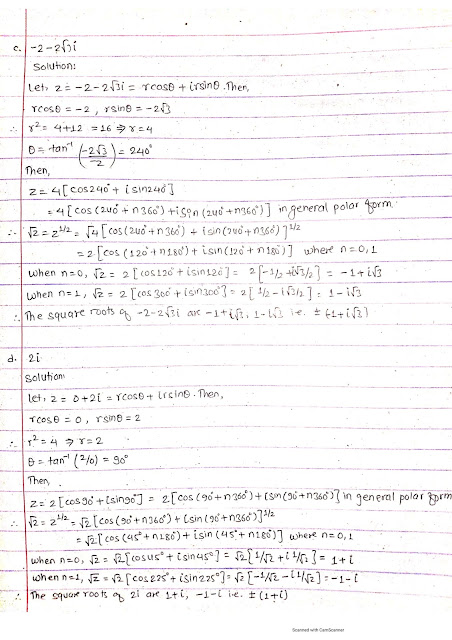 c. -2-2√3i
Solution:
Let, z = -2-2√3i = rcosθ + irsinθ. Then,
rcosθ = -2, rsinθ = -2√3
∴ r² = 4+12 = 16 ⇒ r = 4
θ = tan⁻¹ (-2√3/-2) = 240°
Then,
z = 4[cos240° + isin240°]
= 4[cos(240° + n360°) + isin(240° + n360°)] in general polar form.
∴ √z = z^1/2 = √4[cos(240° + n360°) + isin(240° + n360°)]^1/2
= 2[cos(120° + n180°) + isin(120° + n180°)] where n = 0,1
When n=0, √z = 2[cos120° + isin120°] = 2[-1/2 + i√3/2] = -1+i√3
When n=1, √z = 2[cos300° + isin300°] = 2[1/2 - i√3/2] = 1-i√3
∴ The square roots of -2-2√3i are -1+i√3, 1-i√3 i.e. ±(-1+i√3)
d. 2i
Solution:
Let, z = 0+2i = rcosθ + irsinθ. Then,
rcosθ = 0, rsinθ = 2
∴ r² = 4 ⇒ r = 2
θ = tan⁻¹ (2/0) = 90°
Then,
z = 2[cos90° + isin90°] = 2[cos(90° + n360°) + isin(90° + n360°)] in general polar form
∴ √z = z^1/2 = √2[cos(90° + n360°) + isin(90° + n360°)]^1/2
= √2[cos(45° + n180°) + isin(45° + n180°)] where n = 0,1
When n=0, √z = √2[cos45° + isin45°] = √2[1/√2 + i1/√2] = 1+i
When n=1, √z = √2[cos225° + isin225°] = √2[-1/√2 - i1/√2] = -1-i
∴ The square roots of 2i are 1+i, -1-i i.e. ±(1+i)
Scanned with CamScanner